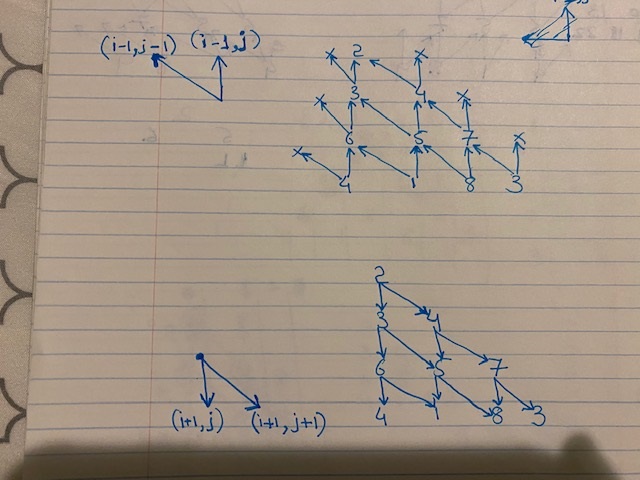 (i-1, j-1) (i-1, j)
x 2 x
x 3 4 x
x 6 5 7 x
4 1 8 3
2
3 4
6 5 7
4 1 8 3
(i+1, j) (i+1, j+1)